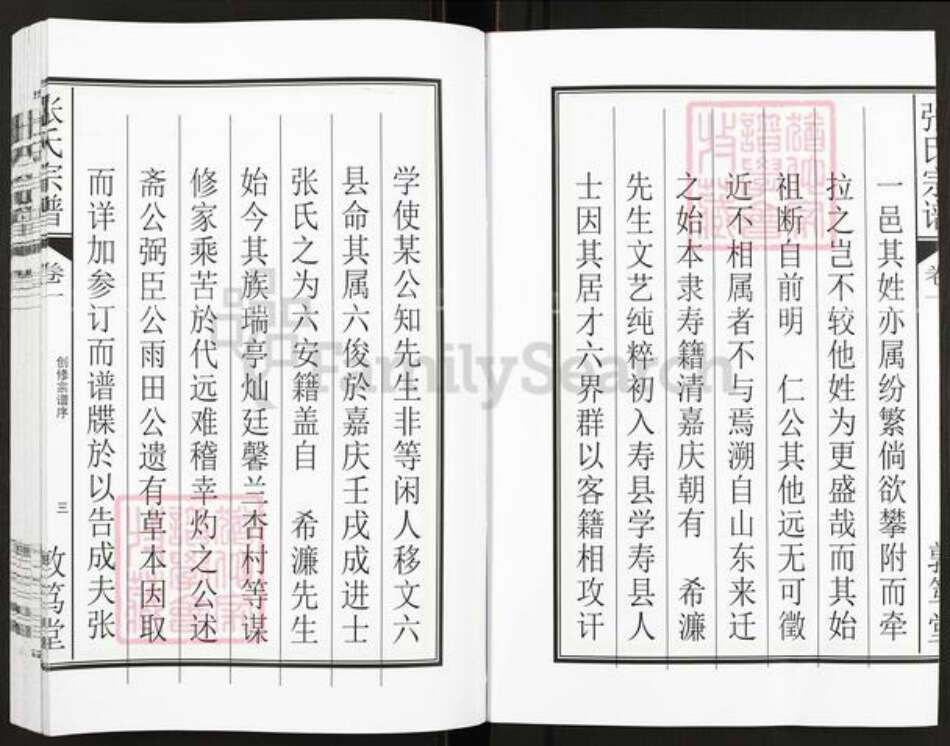 一邑其姓亦属纷繁倘欲攀附而牵
拉之岂不较他姓为更盛哉而其始
祖断自前明 仁公其他远无可徵
近不相属者不与焉溯自山东来迁
之始本隶寿籍清嘉庆朝有 希濂
先生文艺纯粹初入寿县学寿县人
士因其居才六界群以客籍相攻讦
学使某公知先生非等闲人移文六
县命其属六俊於嘉庆壬戌成进士
张氏之为六安籍盖自 希濂先生
始今其族瑞亭灿廷馨兰杏村等谋
修家乘苦於代远难稽幸灼之公述
斋公弼臣公雨田公遗有草本因取
而详加参订而谱牒於以告成夫张
张氏宗谱
卷一
创修宗谱序
三
敦笃堂
FamilySearch